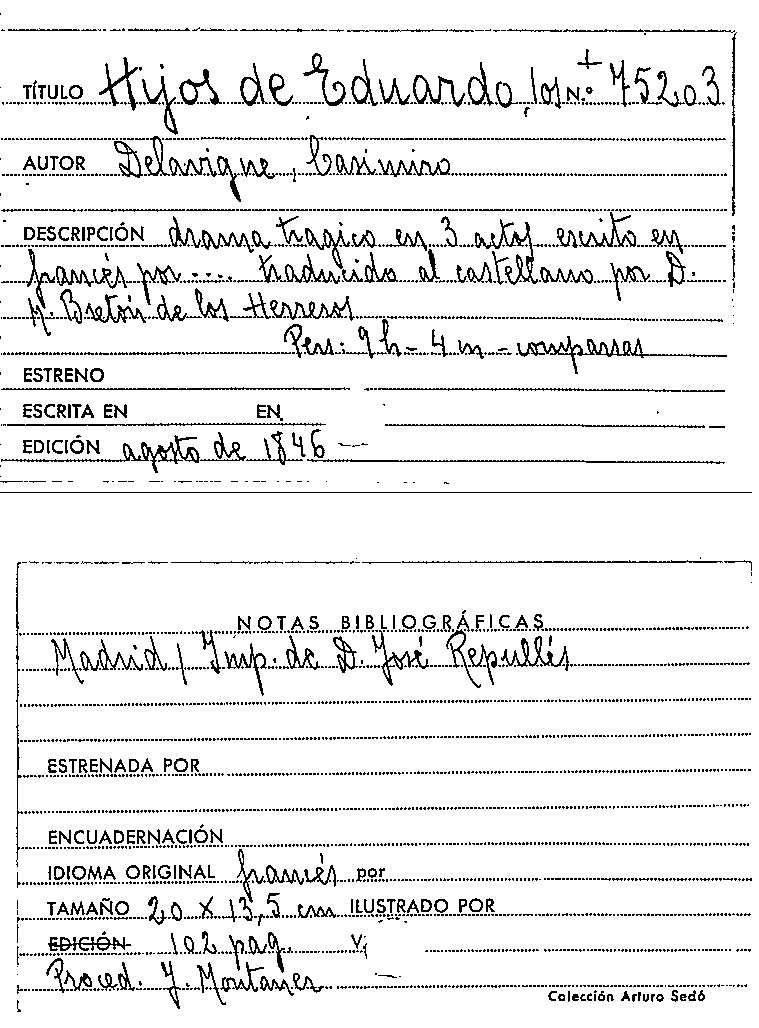 TÍTULO Hijos de Eduardo, los N.º + 75203
AUTOR Delavigne, Casimiro
DESCRIPCIÓN drama tragico en 3 actos escrito en
francés por .... traducido al castellano por D.
M. Bretón de los Herreros
Pers: 9 h - 4 m - comparsas
ESTRENO
ESCRITA EN EN
EDICIÓN agosto de 1846 —
NOTAS BIBLIOGRÁFICAS
Madrid / Imp. de D. José Repullés
ESTRENADA POR
ENCUADERNACIÓN
IDIOMA ORIGINAL francés por
TAMAÑO 20 X 13,5 cm ILUSTRADO POR
EDICIÓN 102 pag. V.
Proced. J. Montaner —
Colección Arturo Sedó